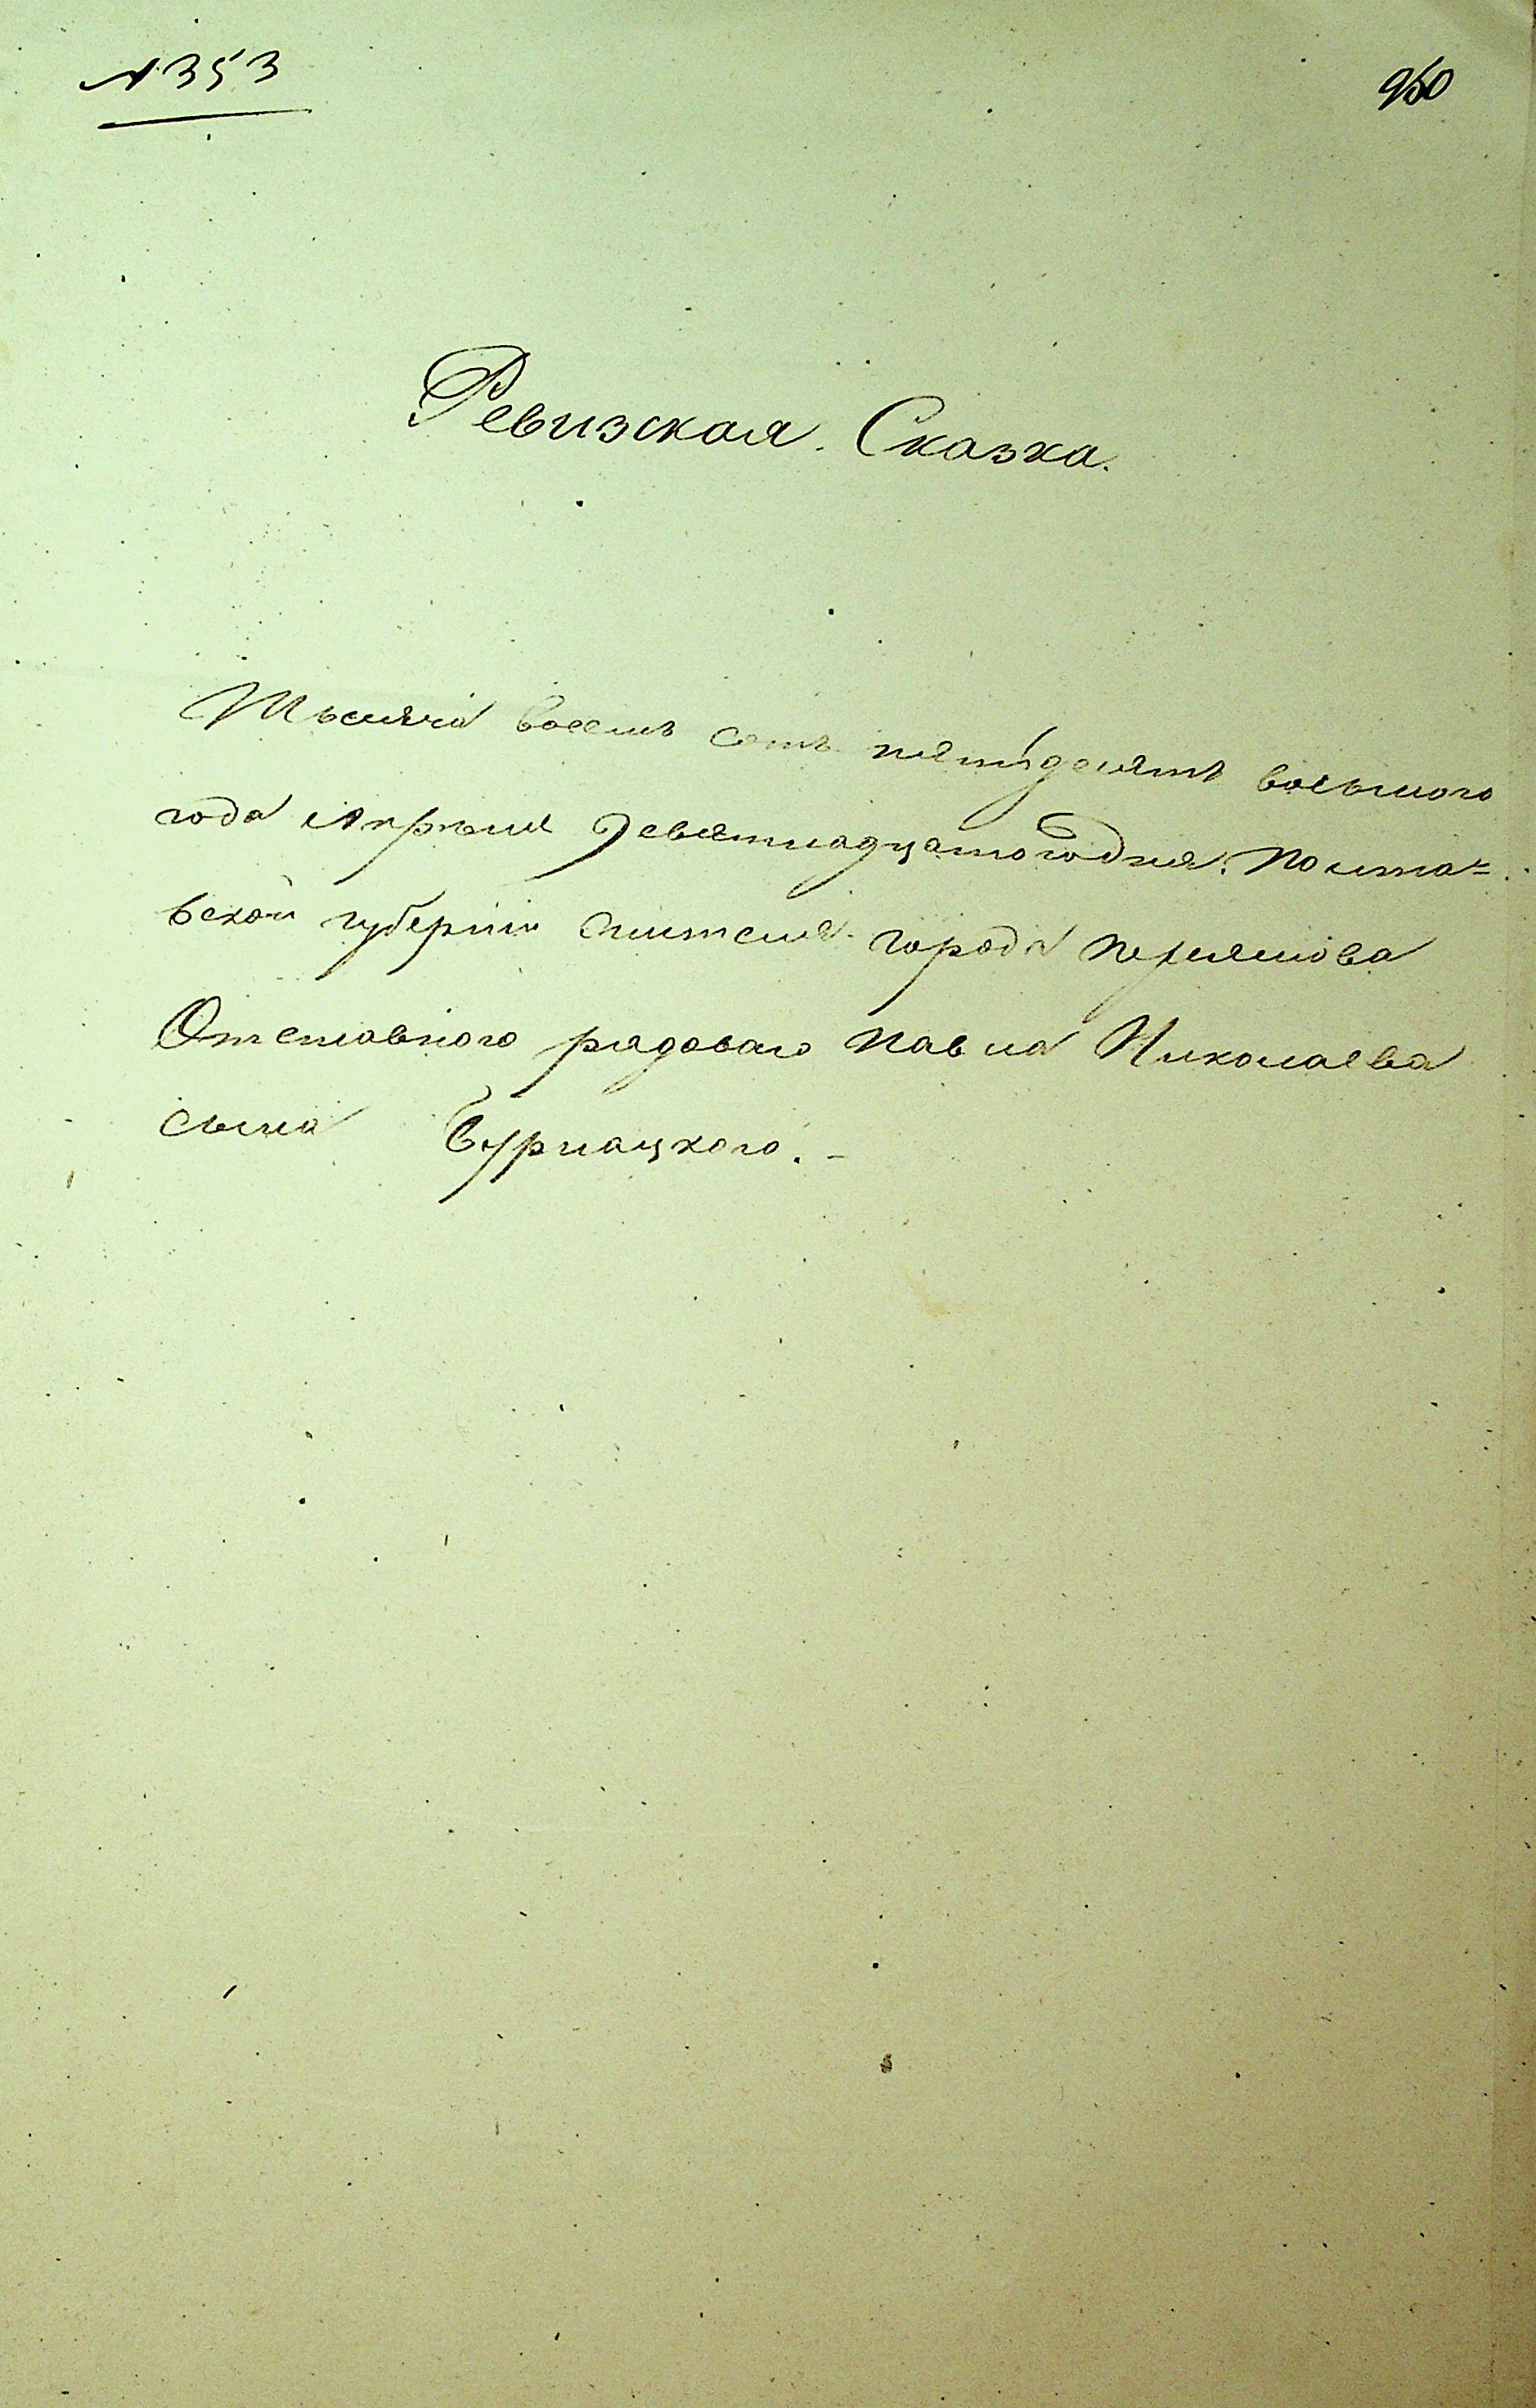 № 353
950
Ревизская Сказка.
Тысяча восемь сотъ пятьдесятъ восьмого
года Апрѣля Девятнадцатогодня. Полта=
вской губерніи жителя города
Отставного рядоваго Павла Николаева
сына Бурнацкого. -